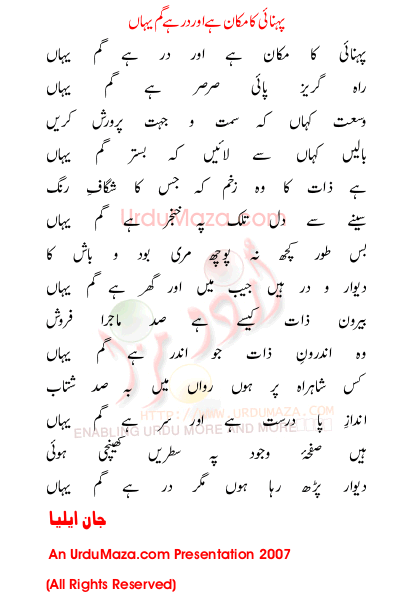 پہنائی کا مکان ہے اور در ہے گم یہاں
پہنائی کا مکان ہے اور در ہے گم یہاں
راہ گریز پائی صرصر ہے گم یہاں
وسعت کہاں کہ سمت و جہت پرورش کریں
بالیں کہاں سے لائیں کہ بستر گم یہاں
ہے ذات کا وہ زخم کہ جس کا شگافِ رنگ
سینے سے دل تلک پہ خنجر ہے گم یہاں
بس طور کچھ نہ پوچھ مری بود و باش کا
دیوار و در ہیں جیب میں اور گھر ہے گم یہاں
بیرون ذات کیسے ہے صد ماجرا فروش
وہ اندرونِ ذات جو اندر ہے گم یہاں
کس شاہراہ پر ہوں رواں میں بہ صد شتاب
اندازِ پا درست ہے اور سر ہے گم یہاں
ہیں صفحۂ وجود پہ سطریں کھینچی ہوئی
دیوار پڑھ رہا ہوں مگر در ہے گم یہاں
جان ایلیا
An UrduMaza.com Presentation 2007
(All Rights Reserved)
UrduMaza.com
اردو مزا
HTTP://WWW.URDUMAZA.COM
ENABLING URDU MORE AND MORE